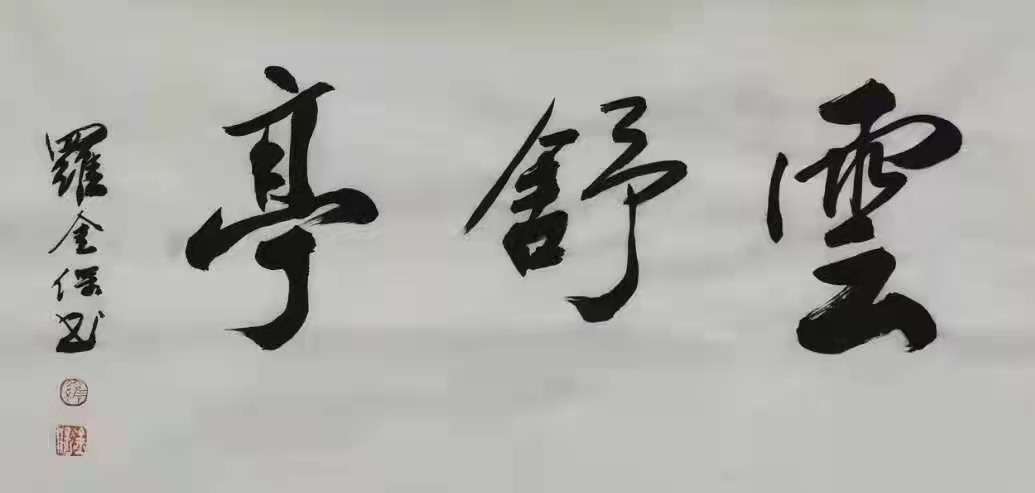 雲舒亭
羅金保书